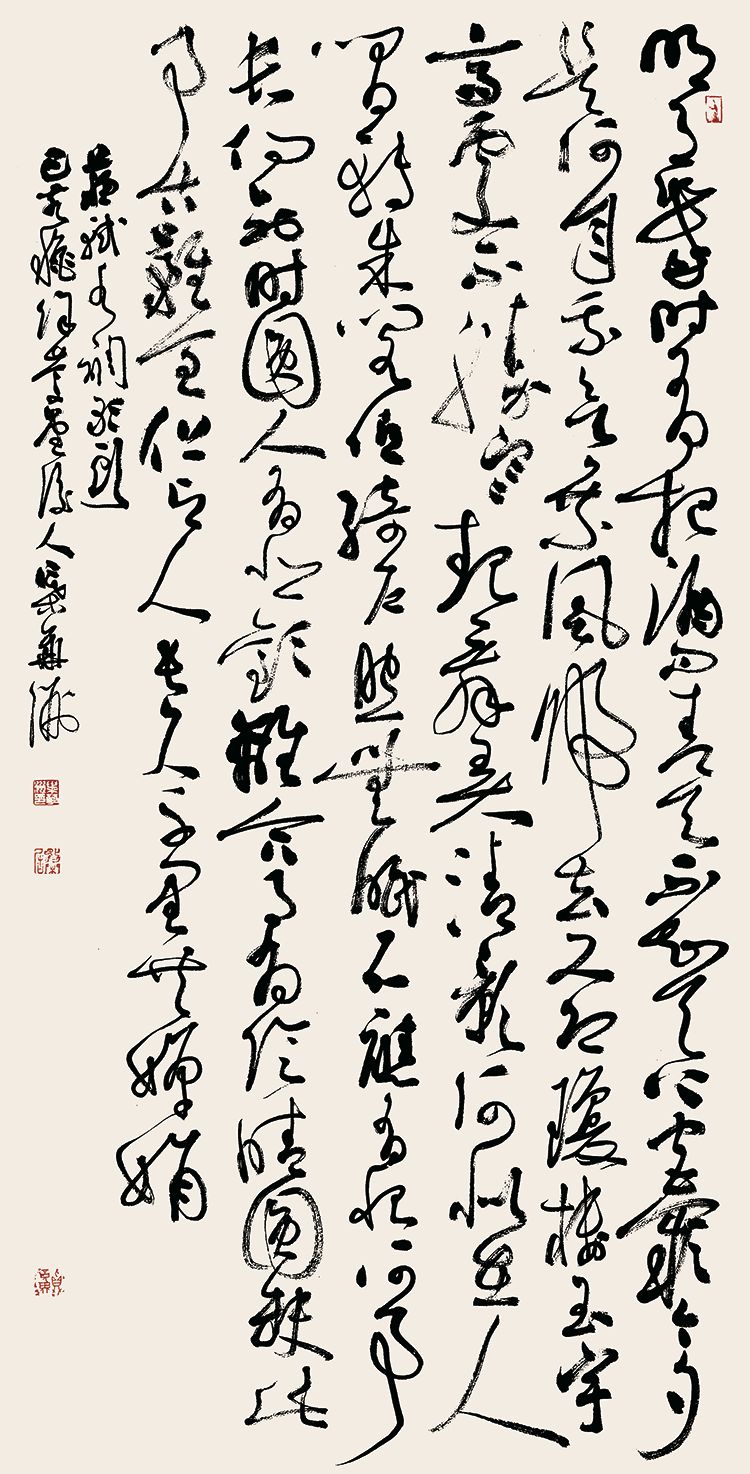 明月幾时有把酒问青天不知天上宫闕今夕
是何年我欲乘風歸去又恐瓊樓玉宇
高處不勝寒起舞弄清影何似在人
間轉朱閣低綺户照無眠不應有恨何事
長向别时圓人有悲歡離合月有陰晴圓缺此
事古難全但願人長久千里共嬋娟
蘇軾水调歌头
己亥 後人